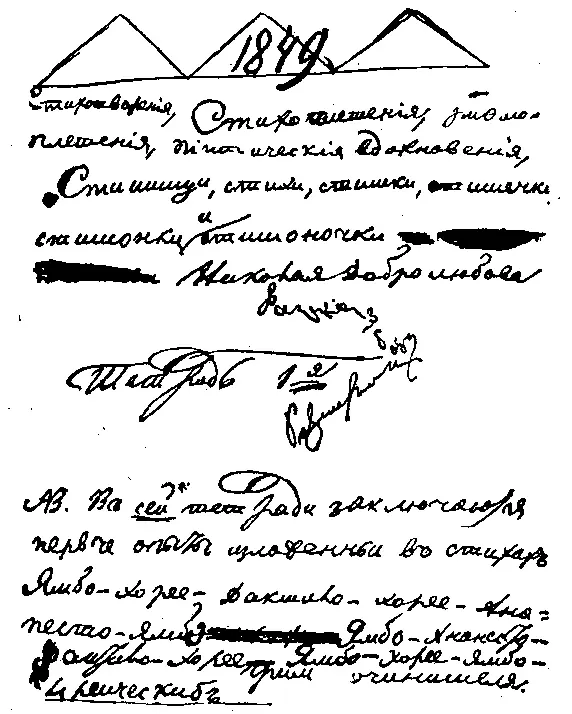 1849.
Стихотворенія, Стихоплетенія, риѳмо-
плетенія, піитическія вдохновенія,
Стишищи, стихи, стишки, стишячки
стишонки и стишоночки
Николая Добролюбова
Тетрадь 1я
NB. Въ сей тетради заключаются
первые опыты изложенны во стихахъ
Ямбо-хорее-дактило-хорее-Ана=
песто-Ямбо Ямбо-Анапесто-
Дактило-хорее Ямбо-хорее-ямбо-
Прим. сочинителя.